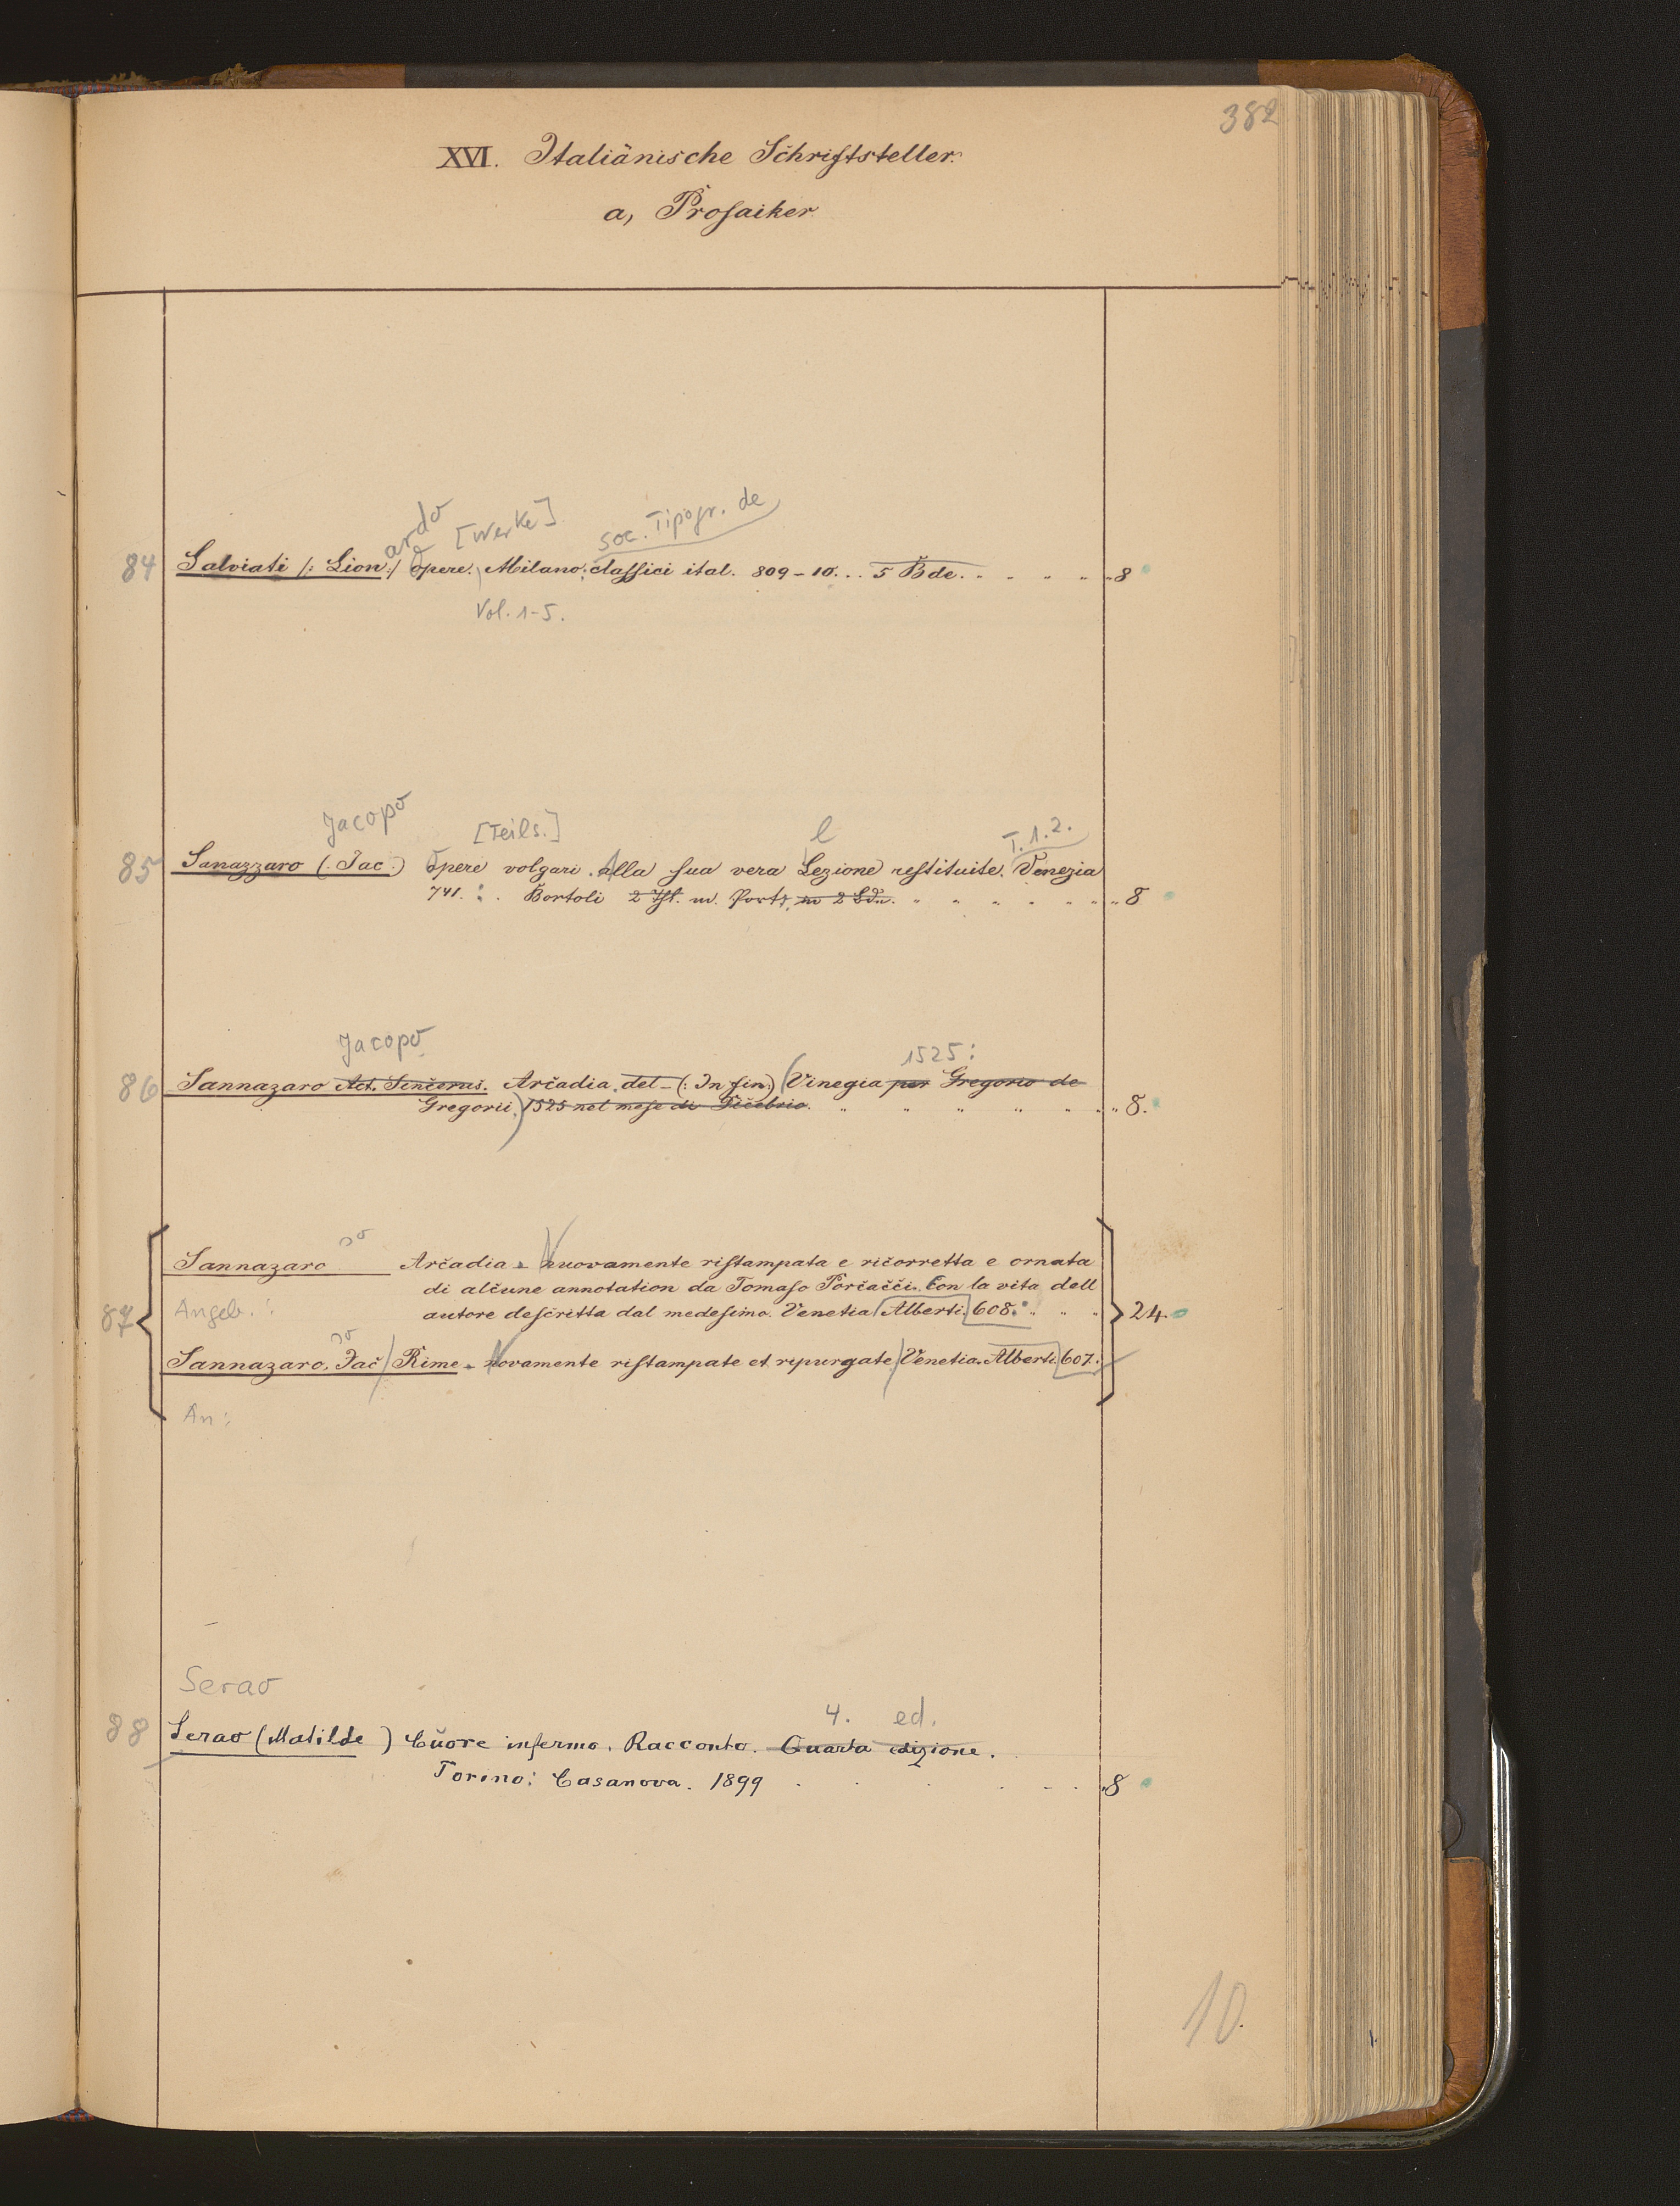 382
XVI. Italiänische Schriftsteller.
a, Prosaiker
ardo [Werke] soc. Tipogr. de
84 Salviati /: Lion :/ Opere. Milano: classici ital. 809-10... 5 Bde. „8
Vol. 1-5.
Jacopo [Teils.] l T. 1.2.
85 Sanazzaro (. Jac.) Opere volgari. Alla sua vera Lezione restituite. Venezia
741. : . Bortoli 2 m. Portr. in 2 Bdn. „8
Jacopo 1525:
86 Sannazaro Act. Sincerus. Arcadia. del - (: In fin:) (Vinegia per Gregorio de
Gregorii.) 1525 nel mese di „8.
Sannazaro Arcadia. Nuovamente ristampata e ricorretta e ornata
di alcune annotation da Tomaso Porcacci. Con la vita dell
87 Angeb.: autore descritta dal medesimo. Venetia Alberti. 608. 24.
Sannazaro, Jac Rime. Novamente ristampate et repurgate. Venetia. Alberti. 607.
An:
Serao
4. ed.
88 Serao (Matilde) Cuore infermo. Racconto. Quarta edizione.
Torino: Casanova. 1899 „8
10.